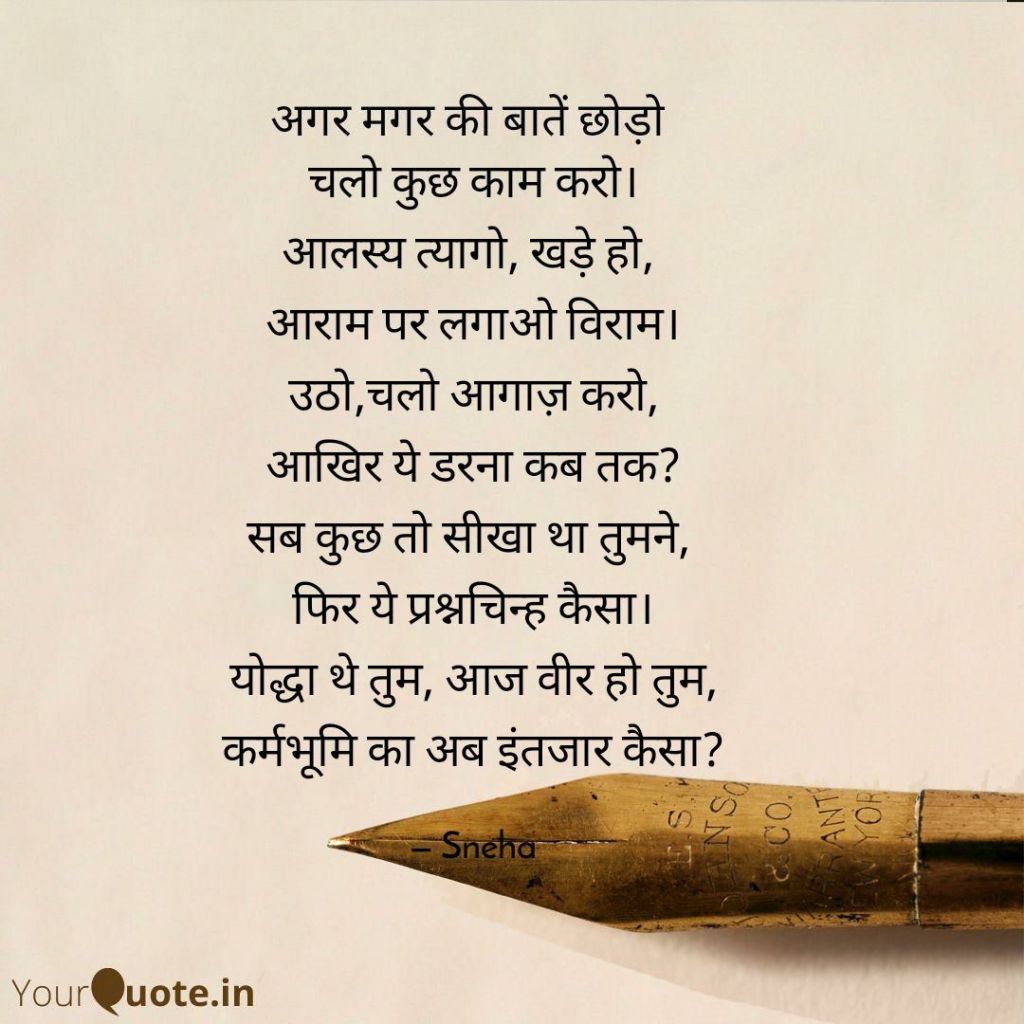 अगर मगर की बातें छोड़ो
चलो कुछ काम करो।
आलस्य त्यागो, खड़े हो,
आराम पर लगाओ विराम।
उठो,चलो आगाज़ करो,
आखिर ये डरना कब तक?
सब कुछ तो सीखा था तुमने,
फिर ये प्रश्नचिन्ह कैसा।
योद्धा थे तुम, आज वीर हो तुम,
कर्मभूमि का अब इंतजार कैसा?
– Sneha
& CO.
YourQuote.in